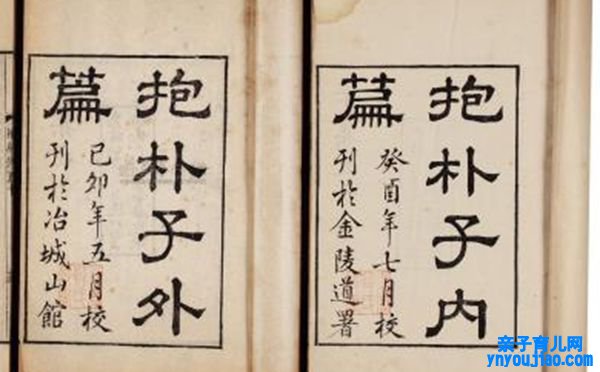 抱朴子内
篇
癸酉年七月校
刊於金陵道署
抱朴子外
篇
己卯年五月校
刊於冶城山館
亲子育儿网
www.ynyoujiao.com